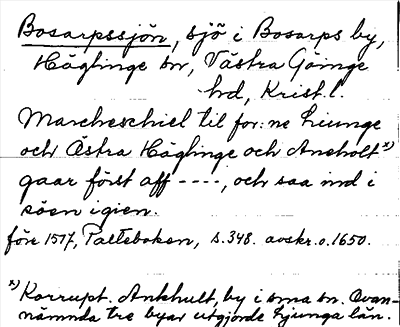 Bosarpssjön, sjö i Bosarps by,
Häglinge sn, Västra Göinge
hd, Krist.l.
Marcheschiel til for:ne Liunge
och Östra Häglinge och Aneholt x)
gaar först aff ----, och saa ind i
söen igien.
före 1517, Palteboken, s. 348. avskr. o. 1650.
x) Korrupt. Ankhult, by i sma sn. Ovan-
nämnda tre byar utgjorde Ljunga län.